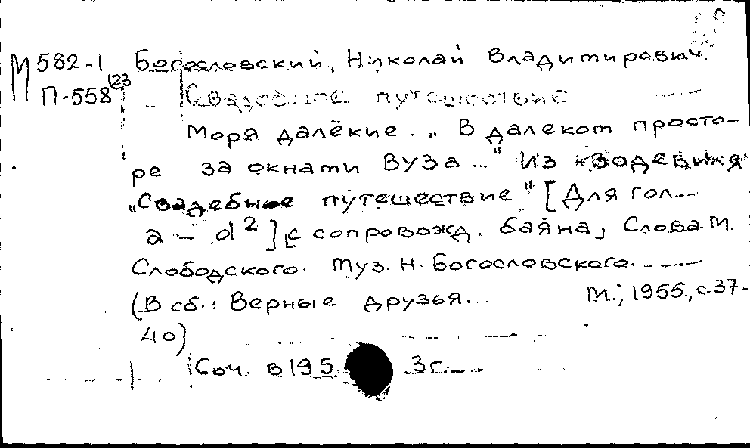 М 582-1 Богословский, Николай Владимирович.
П-558 (23 Свадебное путешествие
Моря далёкие. „В далеком просто-
ре за окнами Вуза..." Из водевиля
„Свадебное путешествие" [Для гол....
а - d²] [с сопровожд. баяна, Слова М.
Слободского. Муз. Н. Богословского.
(В сб.: Верные друзья... М.; 1955, с.37-
40)
Соч. в 195 3г.